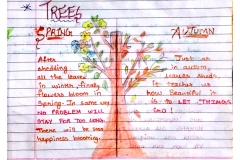 TREES
SPRING
After
shedding
all the leaves
in winter, finally
flowers bloom in
Spring. In same way
NO PROBLEM WILL
STAY FOR LONG.
There will be soon
happiness blooming.
AUTUMN
Just as
in autumn,
leaves shed
it teaches us
how Beautiful it
is to LET THINGS
GO!